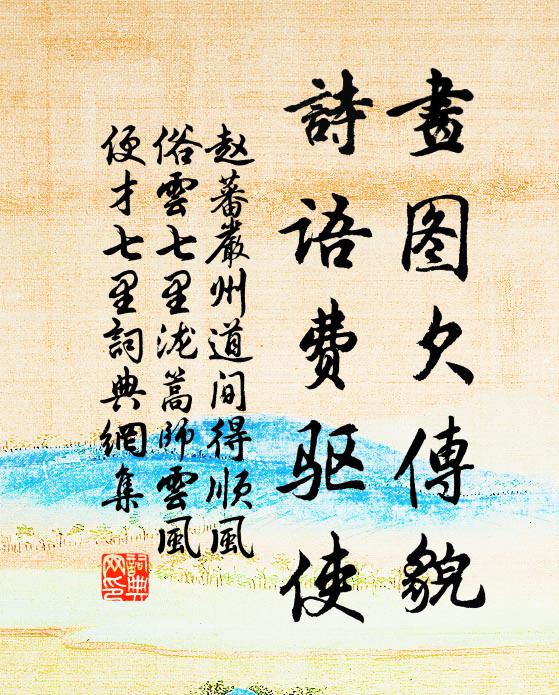 畫图欠傳貌
詩语费驱使
赵蕃嚴州道间得順风
俗雲七里泷篙师雲风
便才七里詞典網集
詞典网印